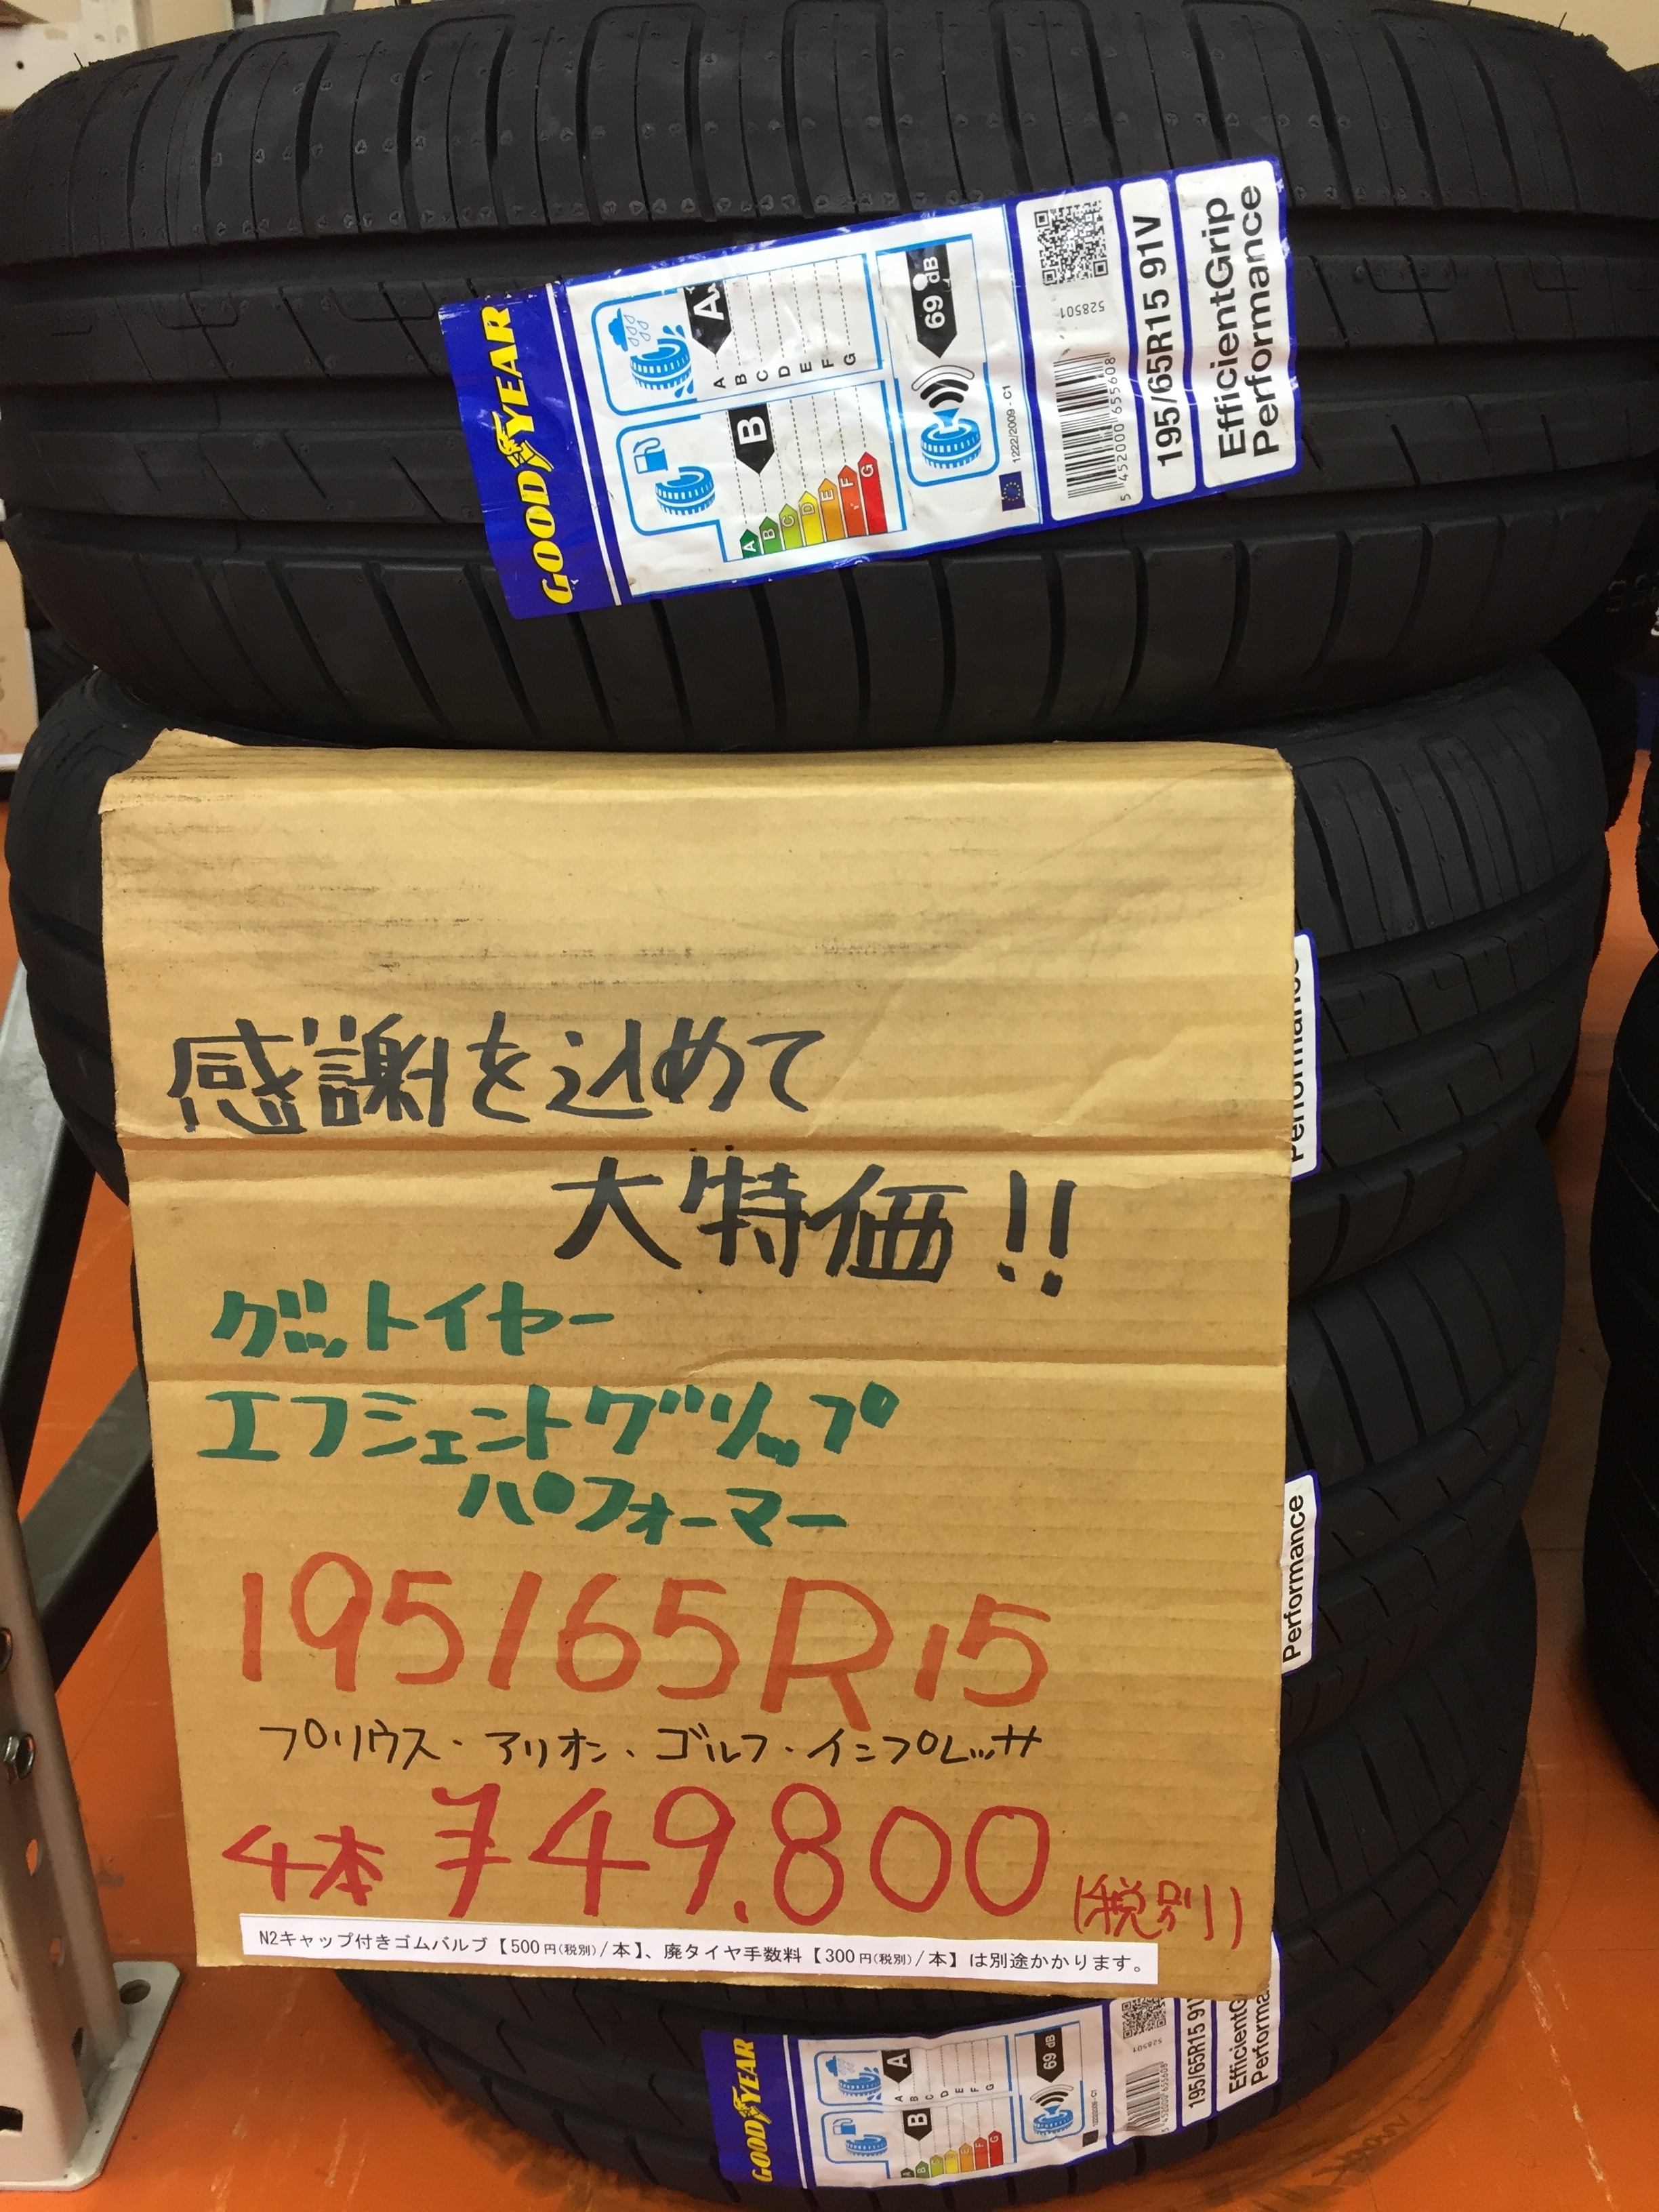 GOODYEAR
A
A
B
C
D
E
F
G
B
A
B
C
D
E
F
G
69 dB
1222/2009 - C1
528501
5 452000 655608
195/65R15 91V
EfficientGrip
Performance
Performance
感謝を込めて
大特価!!
グットイヤー
エフシェントグリップ
パフォーマー
195/65R15
プリウス・アリオン・ゴルフ・インプレッサ
4本 ¥49.800 (税別)
N2キャップ付きゴムバルブ【500円(税別)/本】、廃タイヤ手数料【300円(税別)/本】は別途かかります。
Performance
GOODYEAR
A
A
B
C
D
E
F
G
B
A
B
C
D
E
F
G
69 dB
1222/2009 - C1
528501
5 452000 655608
195/65R15 91V
EfficientG
Performa